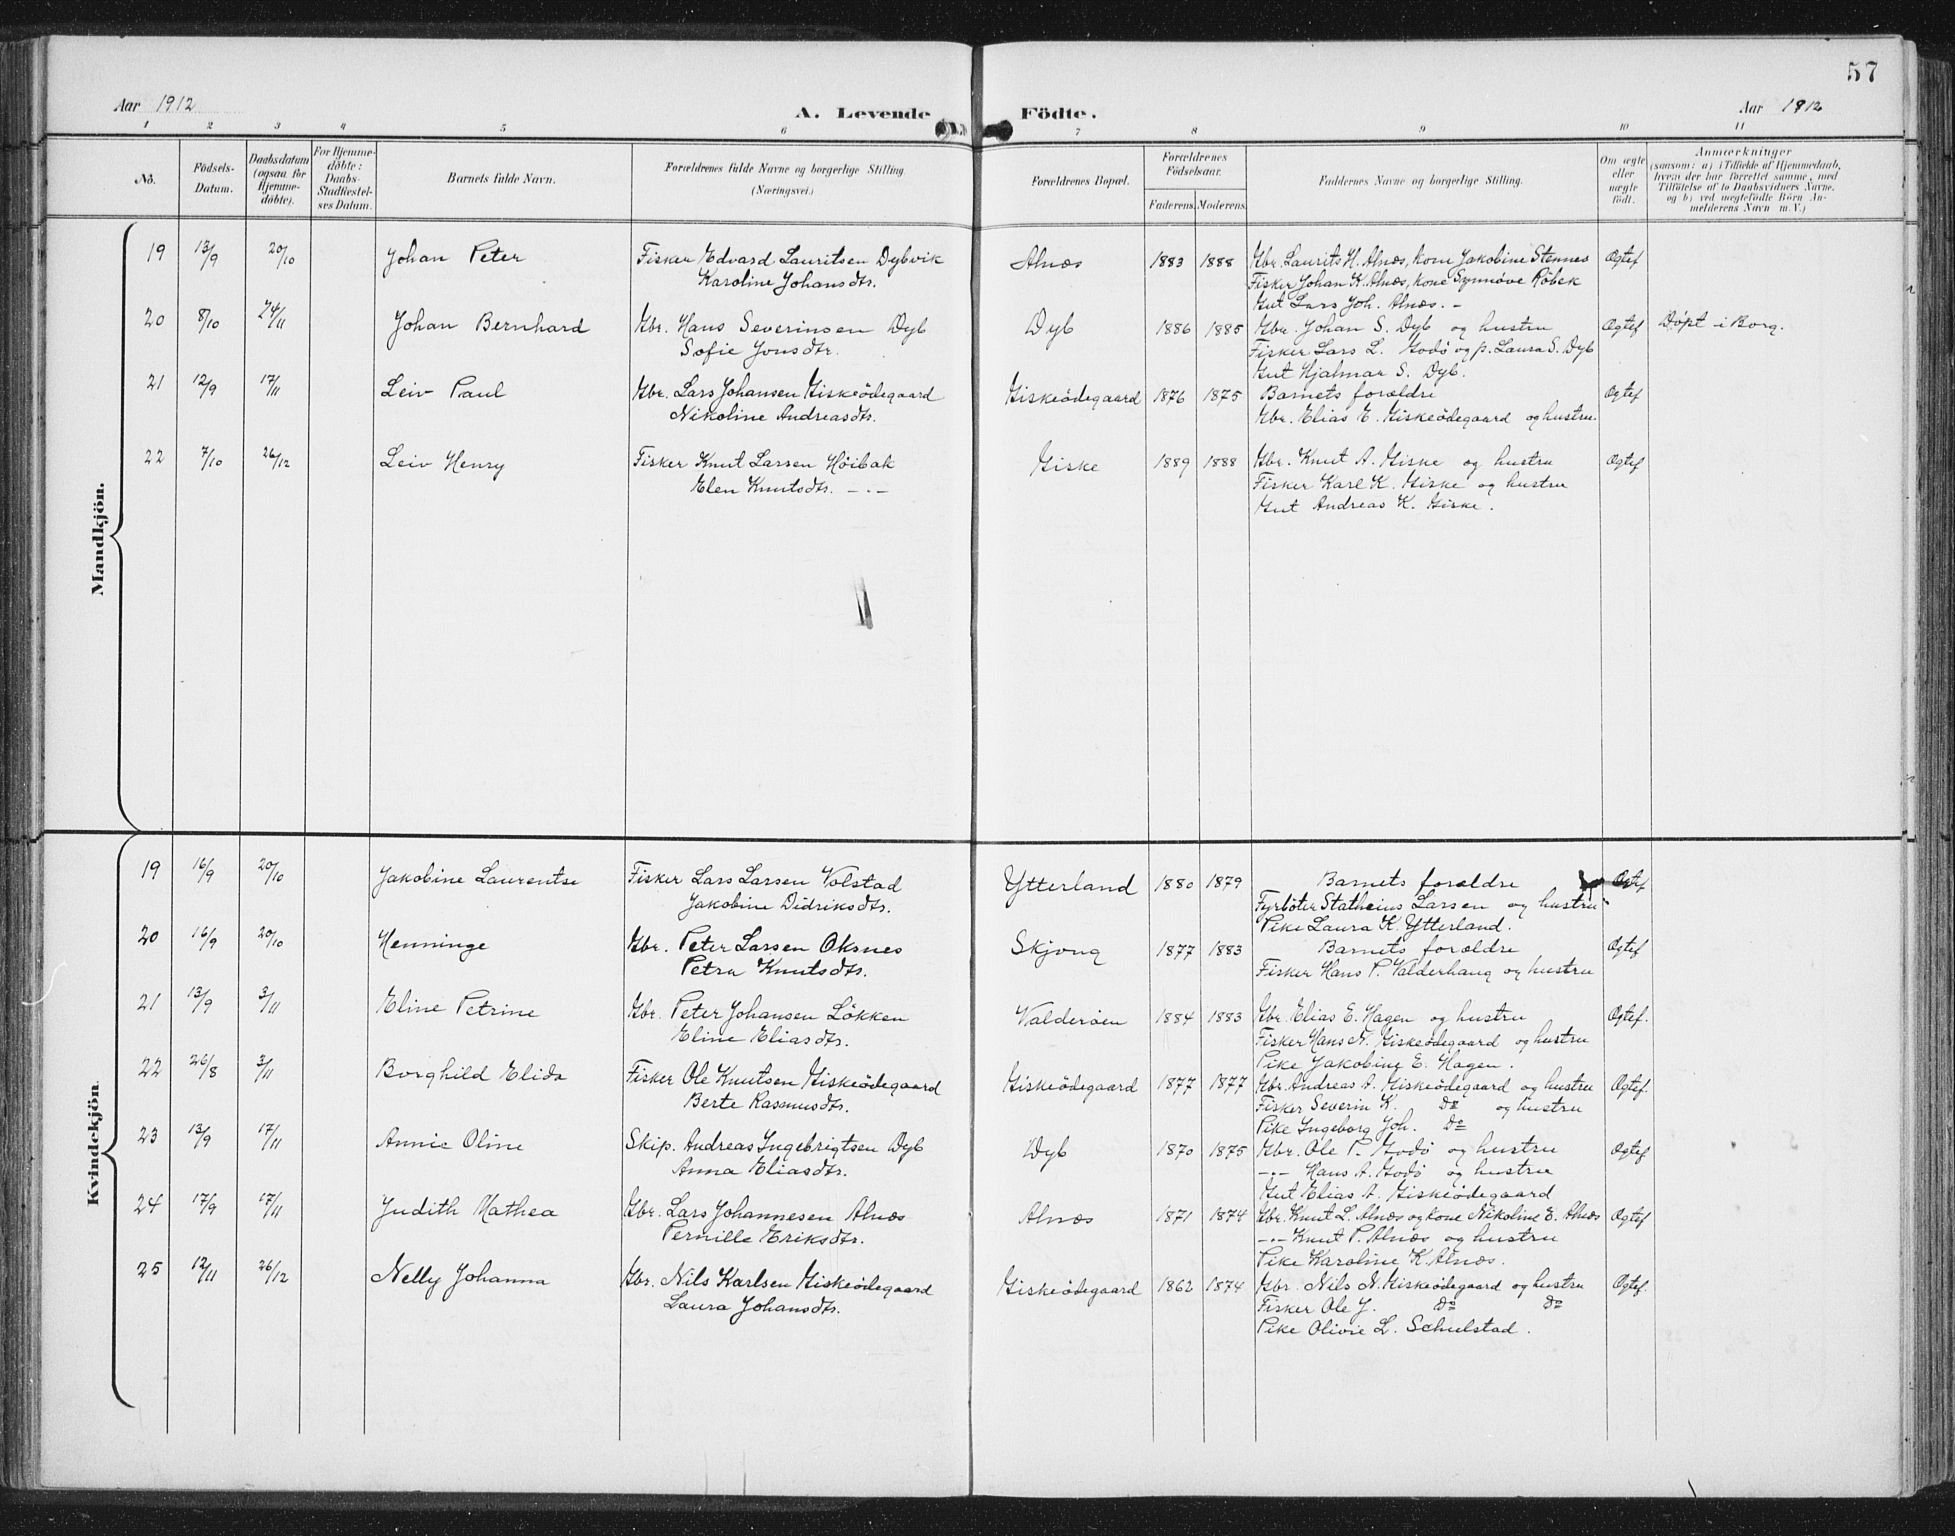 57
Aar 1912 A. Levende Födte. Aar 1912
1 2 3 4 5 6 7 8 9 10 11
No. Födsels-Datum. Daabsdatum (ogsaa for Hjemme-döbte). For Hjemme-döbte: Daabs-Stadfæstel-ses Datum. Barnets fulde Navn. Forældrenes fulde Navne og borgerlige Stilling. (Næringsvei.) Forældrenes Bopæl. Forældrenes Födselsaar. Faderens. Moderens. Faddernes Navne og borgerlige Stilling. Om ægte eller uægte födt. Anmærkninger (saasom: a) i Tilfælde af Hjemmedaab, hvem der har forrettet samme, med Tilföielse af to Daabsvidners Navne, og b) ved uægtefödte Börn An-melderens Navn m. V.)
Mandkjön.
19 13/9 20/10 Johan Peter Fisker Edvard Lauritsen Dybvik Alnæs 1883 1888 Gbr. Laurits H. Alnæs, kone Jakobine Stennes Ægtef
Karoline Johansdtr. Fisker Johan K. Alnæs, kone Synnöve Röbek
Gut Lars Joh. Alnæs. -
20 8/10 24/11 Johan Bernhard Gbr. Hans Severinsen Dyb Dyb 1886 1885 Gbr. Johan S. Dyb og hustru Ægtef Döpt i Borg.
Sofie Jonsdtr. Fisker Lars L. Godö og p. Laura S. Dyb
Gut Hjalmar S. Dyb.
21 12/9 17/11 Leiv Paul Gbr. Lars Johansen Giskeödegaard Giskeödegaard 1876 1875 Barnets forældre Ægtef
Nikoline Andreasdtr. Gbr. Elias E. Giskeödegaard og hustru.
22 7/10 26/12 Leiv Henry Fisker Knut Larsen Höibak Giske 1889 1888 Gbr. Knut A. Giske og hustru Ægtef
Elen Knutsdtr. -.- Fisker Karl K. Giske og hustru
Gut Andreas K. Giske.
Kvindekjön.
19 16/9 20/10 Jakobine Laurentse Fisker Lars Larsen Volstad Ytterland 1880 1879 Barnets forældre Ægtef
Jakobine Didriksdtr. Fyrböter Statheius Larsen og hustru
Pike Laura K. Ytterland.
20 16/9 20/10 Henninge Gbr. Peter Larsen Oksnes Skjong 1877 1883 Barnets forældre Ægtef
Petra Knutsdtr. Fisker Hans P. Valderhaug og hustru
21 13/9 3/11 Eline Petrine Gbr. Peter Johansen Lökken Valderöen 1884 1883 Gbr. Elias E. Hagen og hustru Ægtef.
Eline Eliasdtr. Fisker Hans N. Giskeödegaard og hustru
Pike Jakobine E. Hagen.
22 26/8 3/11 Borghild Elida Fisker Ole Knutsen Giskeödegaard Giskeödegaard 1877 1877 Gbr. Andreas A. Giskeödegaard og hustru Ægtef.
Berte Rasmusdtr. Fisker Severin K. Do og hustru
Pike Ingeborg Joh. Do
23 13/9 17/11 Annie Oline Skip. Andreas Ingebrigtsen Dyb Dyb 1870 1875 Gbr. Ole P. Godö og hustru Ægtef
Anna Eliasdtr. -.- Hans A. Godö og hustru
Gut Elias A. Giskeödegaard
24 17/9 17/11 Judith Mathea Gbr. Lars Johannesen Alnæs Alnæs 1871 1874 Gbr. Knut L. Alnæs og kone Nikoline E. Alnæs Ægtef
Pernille Eriksdtr. -.- Knut P. Alnæs og hustru
Pike Karoline K. Alnæs.
25 12/11 26/12 Nelly Johanna Gbr. Nils Karlsen Giskeödegaard Giskeödegaard 1862 1874 Gbr. Nils N. Giskeödegaard og hustru Ægtef.
Laura Johansdtr. Fisker Ole J. Do Do
Pike Olivie L. Schulstad.